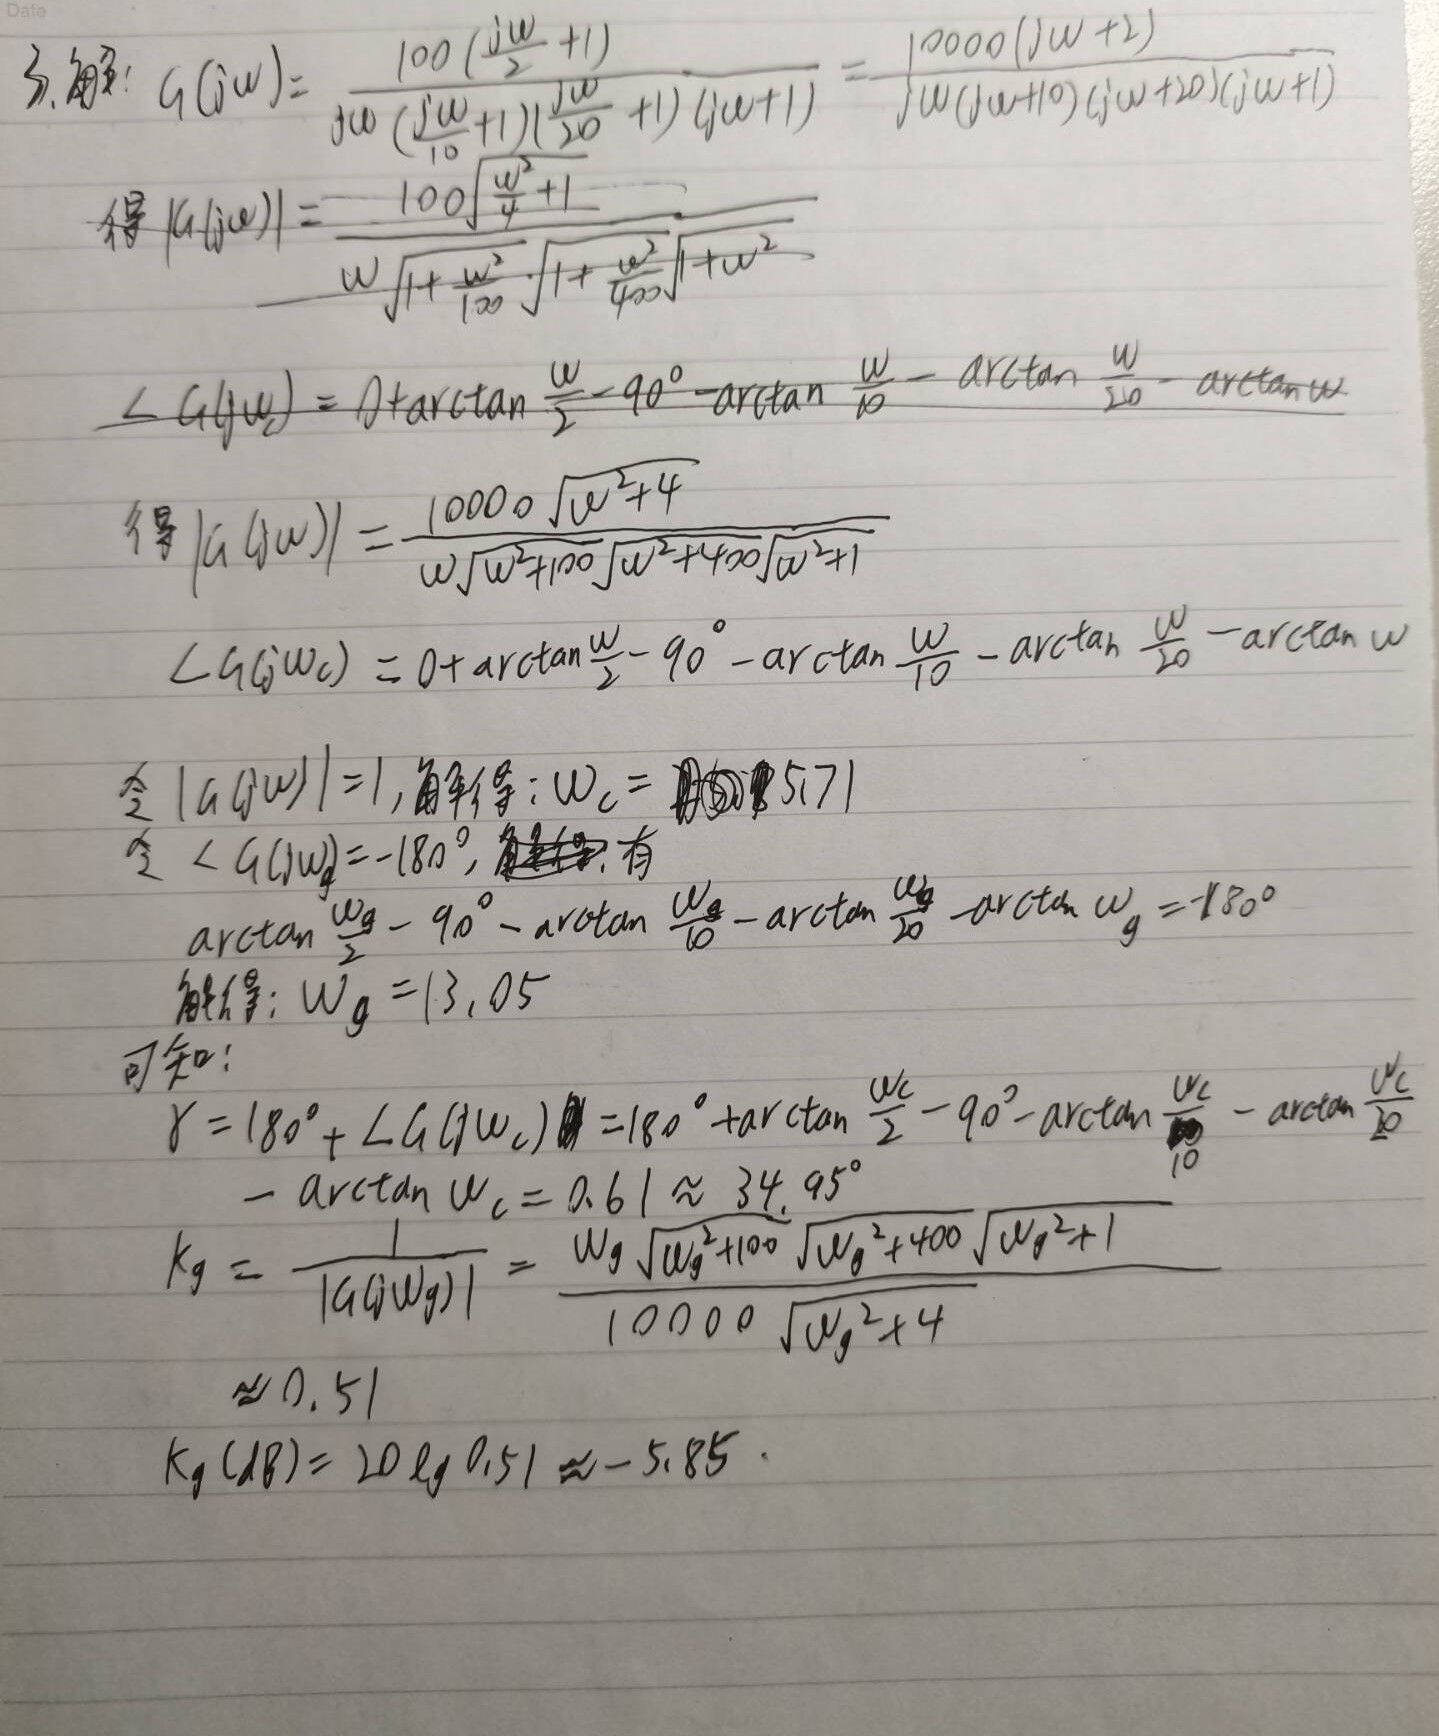 Date
3.解: G(jω)= 100(jω/2+1) / jω(jω/10+1)(jω/20+1)(jω+1) = 10000(jω+2) / jω(jω+10)(jω+20)(jω+1)
得|G(jω)|= 100√(ω²/4+1) / ω√(1+ω²/100)·√(1+ω²/400)√(1+ω²)
∠G(jωc) = 0+arctan ω/2 - 90° - arctan ω/10 - arctan ω/20 - arctan ω
得|G(jω)| = 10000√(ω²+4) / ω√(ω²+100)√(ω²+400)√(ω²+1)
∠G(jωc) = 0+arctan ω/2 - 90° - arctan ω/10 - arctan ω/20 - arctan ω
令|G(jω)|=1,解得:ωc= 5.71
令∠G(jωg)=-180°, 有
arctan ωg/2 - 90° - arctan ωg/10 - arctan ωg/20 - arctan ωg = -180°
解得: ωg = 13.05
可知:
γ=180°+∠G(jωc)=180°+arctan ωc/2 - 90° - arctan ωc/10 - arctan ωc/20
- arctan ωc = 0.61 ≈ 34.95°
Kg = 1/|G(jωg)| = ωg√(ωg²+100)√(ωg²+400)√(ωg²+1) / 10000√(ωg²+4)
≈0.51
Kg(dB)= 20lg0.51 ≈ -5.85.